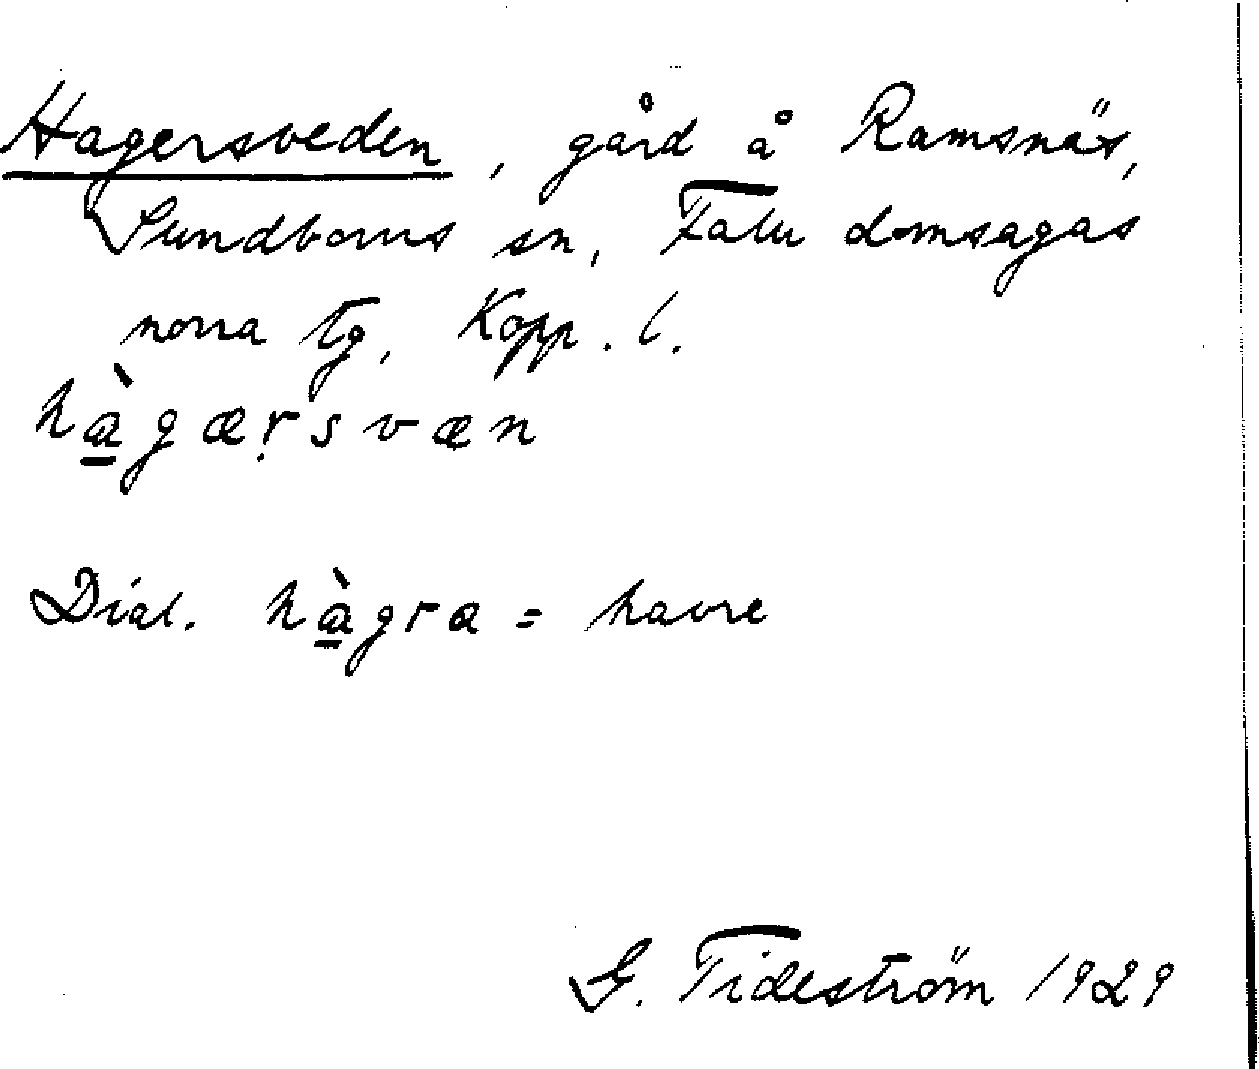 Hagersveden, gård å Ramsnäs,
Sundborns sn, Falu domsagas
norra tg, Kopp. l.
hà̱gæṛsvæn
Dial. hà̱gra = havre
G. Tideström 1929